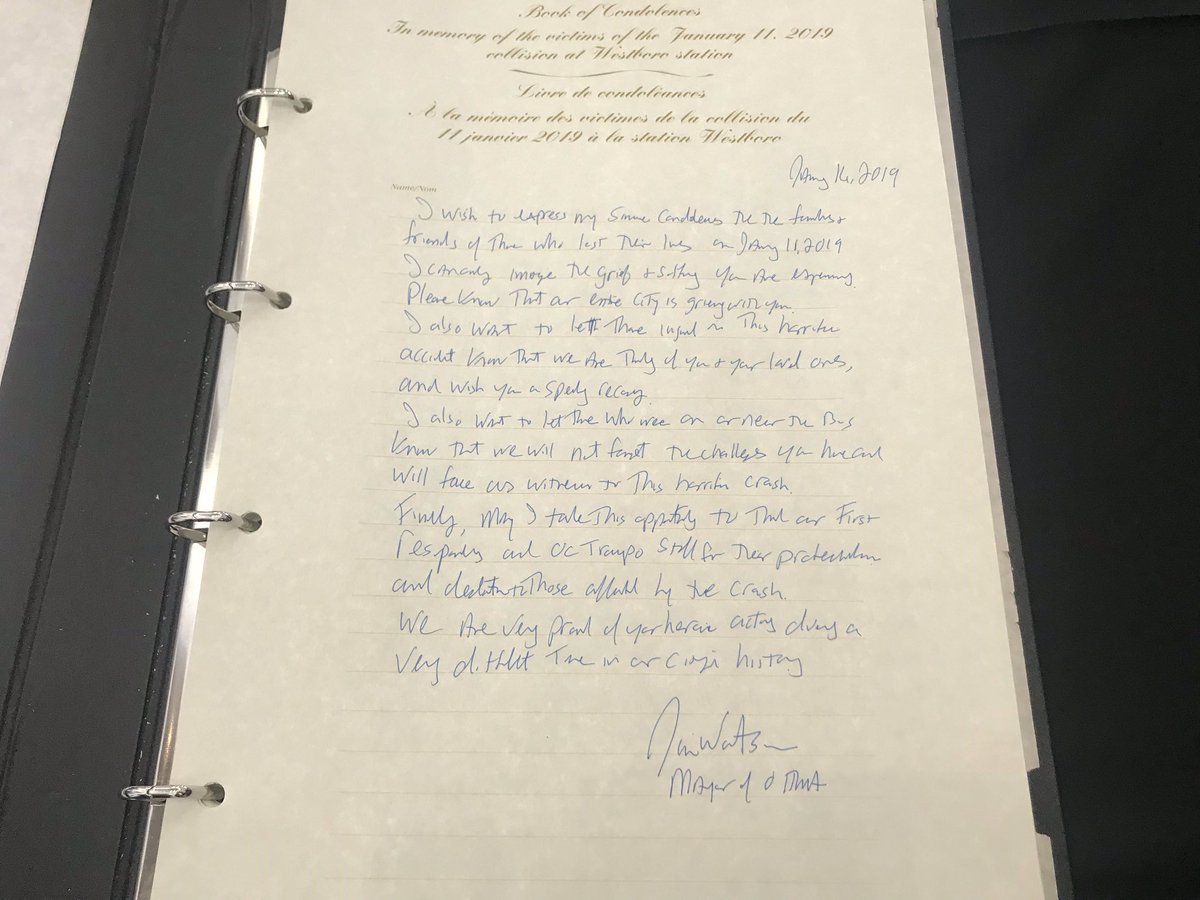 Book of Condolences
In memory of the victims of the January 11, 2019
collision at Westboro station
Livre de condoléances
À la mémoire des victimes de la collision du
11 janvier 2019 à la station Westboro
January 14, 2019
Name/Nom
I wish to express my Sincere Condolences to the families &
friends of those who lost their lives on January 11, 2019
I can only imagine the grief & suffering you are experiencing.
Please Know That our entire City is grieving with you.
I also want to let those injured in This horrific
accident Know That we are Thinking of you & your loved ones,
and wish you a speedy recovery.
I also want to let those who were on or near the Bus
Know that we will not forget the challenges you have and
will face as witness to This horrific crash.
Finally, may I take This opportunity to Thank our First
responders and OC Transpo Staff for their
and dedication to Those affected by the crash.
We are very proud of your heroic actions during a
very difficult Time in our City's history
Jim Watson
Mayor of Ottawa